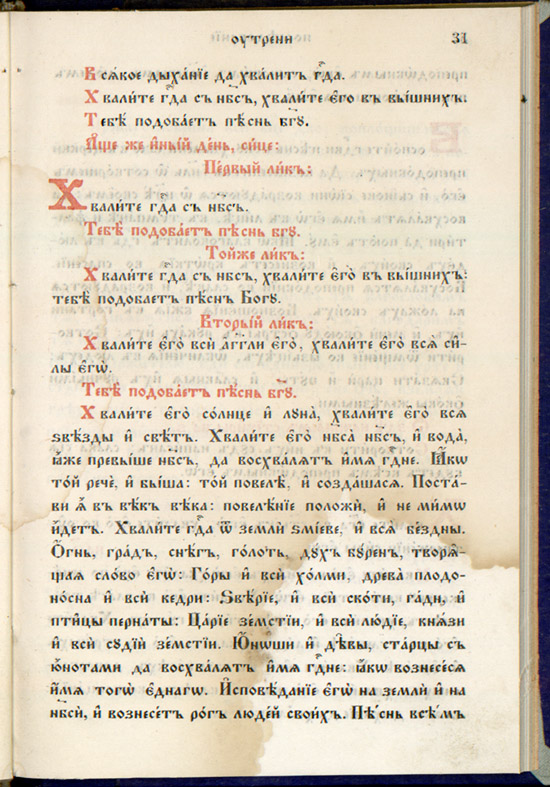 оутрени 31
Всѧ́кое дыха́нїе да хва́литъ гдⷭ҇а.
Хвали́те гдⷭ҇а съ нб҃съ, хвали́те є҆го̀ въ вы́шнихъ.
Тебѣ̀ подоба́етъ пѣ́снь бг҃ꙋ.
А҆́ще же и҆́ный де́нь, си́це:
Пе́рвый ли́къ:
Хвали́те гдⷭ҇а съ нб҃съ.
Тебѣ̀ подоба́етъ пѣ́снь бг҃ꙋ.
То́йже ли́къ:
Хвали́те гдⷭ҇а съ нб҃съ, хвали́те є҆го̀ въ вы́шнихъ:
тебѣ̀ подобаетъ пѣсн Богꙋ.
Вторы́й ли́къ:
Хвали́те є҆го̀ всѝ а҆́гг҃ли є҆го̀, хвали́те є҆го̀ всѧ̑ си́-
лы є҆гѡ̀.
Тебѣ̀ подоба́етъ пѣ́снь бг҃ꙋ.
Хвали́те є҆го̀ со́лнце и҆ лꙋна̀, хвали́те є҆го̀ всѧ
ѕвѣ́зды и҆ свѣ́тъ. Хвали́те є҆го̀ нб҃са̀ нб҃съ, и҆ вода̀,
ꙗ҆́же превы́ше нб҃съ, да восхва́лѧтъ и҆́мѧ гдⷭ҇не. Ꙗ҆́кѡ
то́й речѐ, и҆ бы́ша: той повелѣ̀, и҆ созда́шасѧ. Поста́-
ви ѧ҆̀ въ вѣ́къ вѣ́ка: повелѣ́нїе положѝ, и҆ не ми́мѡ
и҆́детъ. Хвали́те гдⷭ҇а ѿ землѝ ѕмі́еве, и҆ всѧ̑ бе́здны.
Ѻ҆́гнь, гра́дъ, снѣ́гъ, го́лоть, дꙋ́хъ бꙋ́ренъ, творѧ́-
щаѧ сло́во є҆гѡ̀: Го́ры и҆ всѝ хо́лми, древа̀ плодо-
но́сна и҆ всѝ ке́дри: Ѕвѣ́рїе, и҆ всѝ ско́ти, га́ди, и҆
пти́цы перна́ты: Ца́рїе зе́мстїи, и҆ всѝ лю́дїе, кнѧ́зи
и҆ всѝ сꙋдїѝ зе́мстїи. Ю҆́нѡши и҆ дѣ́вы, ста́рцы съ
ю҆́нотами да восхва́лѧтъ и҆́мѧ гдⷭ҇не: ꙗ҆́кѡ вознесе́сѧ
и҆́мѧ тогѡ̀ є҆ди́нагѡ. И҆сповѣ́данїе є҆гѡ̀ на землѝ и҆ на
нб҃сѝ, и҆ вознесе́тъ ро́гъ люде́й свои́хъ. Пѣ́снь всѣ̑мъ